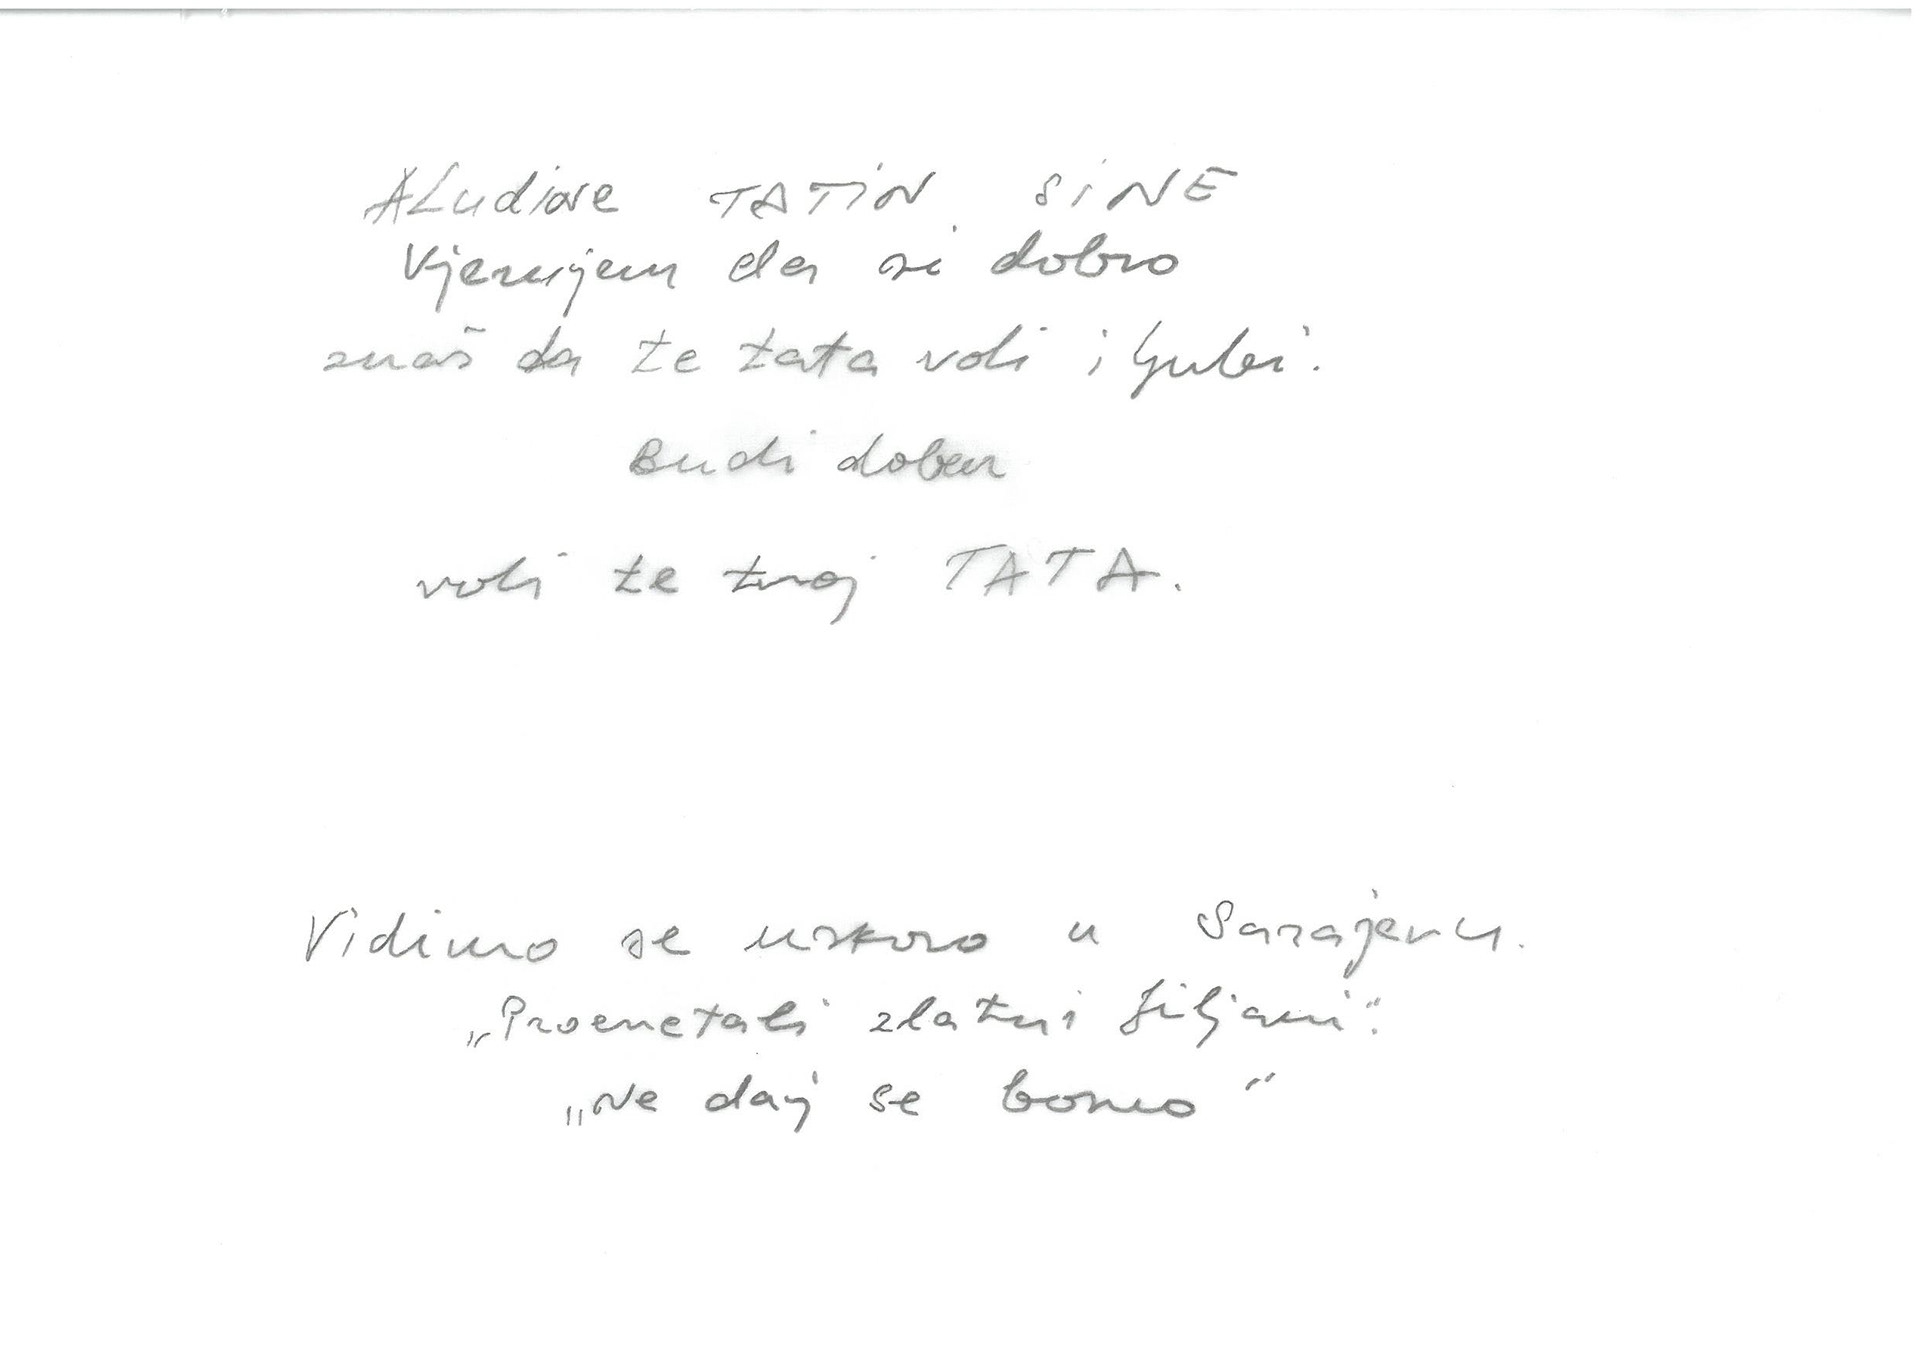 ALudine TATIN SINE
Vjerujem da si dobro
znaš da te tata voli i ljubi.
Budi dobar
voli te tvoj TATA.
Vidimo se uskoro u Sarajevu.
„Procvetali zlatni ljiljani“.
„Ne daj se bosno“